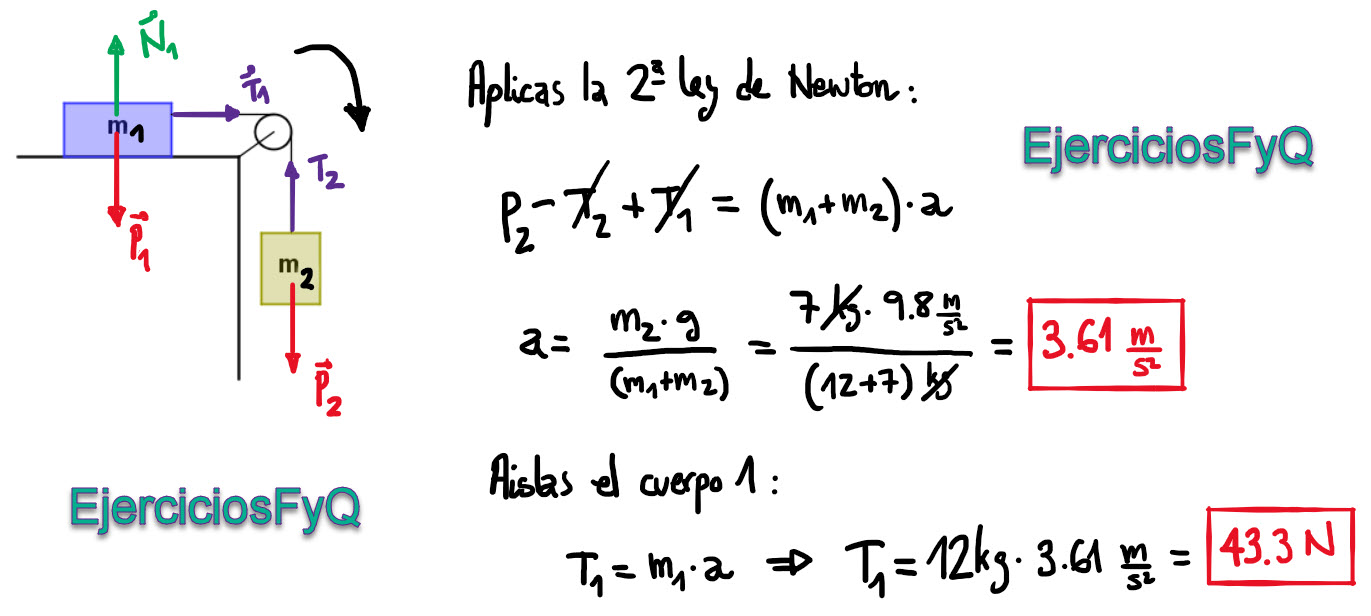 N₁
T₁
m₁
T₂
p₁
m₂
p₂
EjerciciosFyQ
Aplicas la 2ª ley de Newton:
EjerciciosFyQ
p₂ - T₂ + T₁ = (m₁+m₂)·a
a = m₂·g / (m₁+m₂) = 7 kg · 9.8 m/s² / (12+7) kg = 3.61 m/s²
Aislas el cuerpo 1:
T₁ = m₁·a ⇒ T₁ = 12kg · 3.61 m/s² = 43.3 N